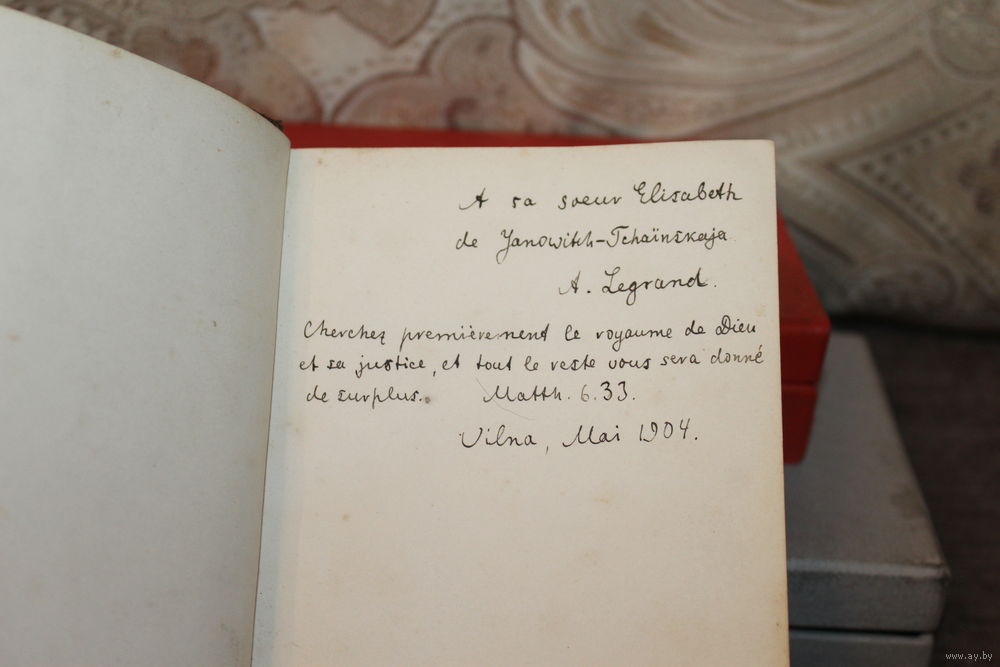 A sa soeur Elisabeth
de Janowitch-Tchaïnskaja
A. Legrand.
Cherchez premièrement le royaume de Dieu
et sa justice, et tout le reste vous sera donné
de surplus. Matth. 6.33.
Vilna, Mai 1904.
www.ay.by